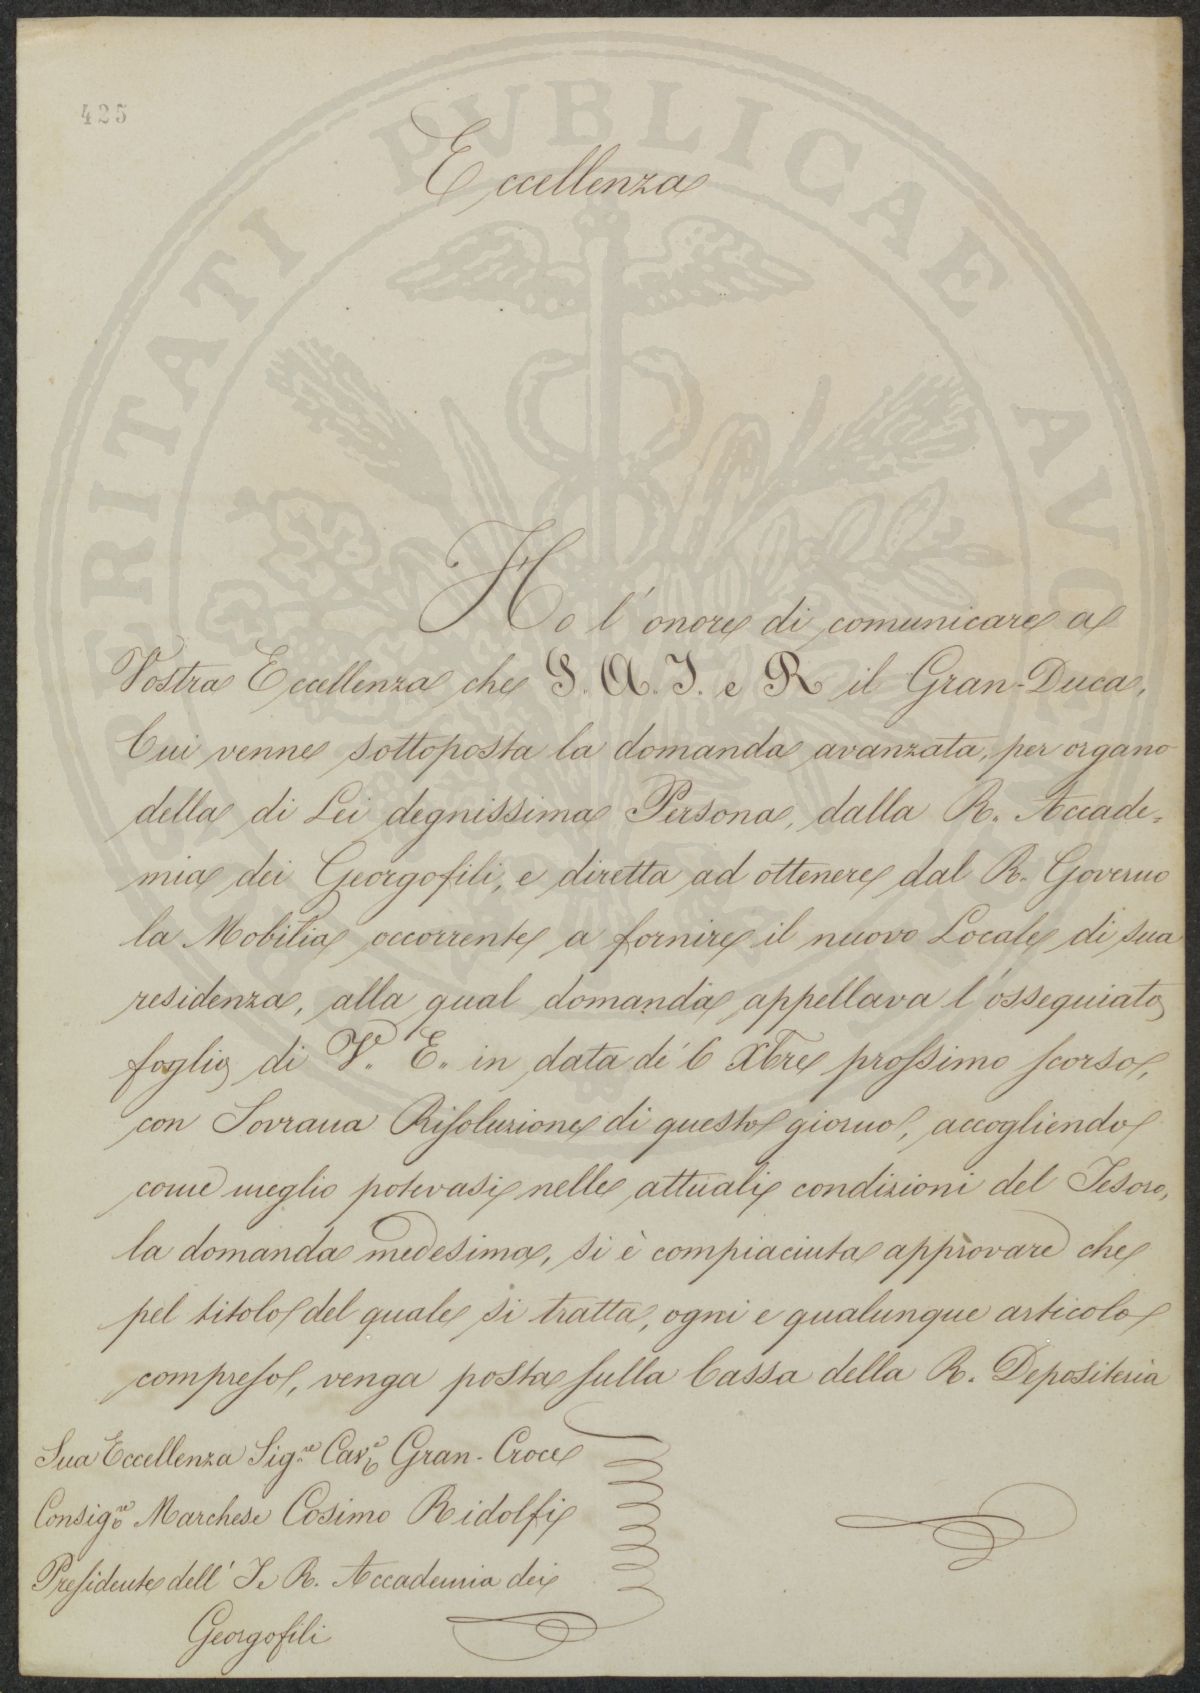 425
Eccellenza
Ho l'onore di comunicare a
Vostra Eccellenza che S. A. I. e R il Gran-Duca,
Cui venne sottoposta la domanda avanzata, per organo
della di Lei degnissima Persona, dalla R. Accade=
mia dei Georgofili, e diretta ad ottenere dal R. Governo
la Mobilia occorrente a fornire il nuovo Locale di sua
residenza, alla qual domanda appellava l'ossequiato
foglio di V. E. in data de' 6 Xbre prossimo scorso,
con Sovrana Risoluzione di questo giorno, accogliendo
come meglio potevasi nelle attuali condizioni del Tesoro,
la domanda medesima, si è compiaciuta approvare che
pel titolo del quale si tratta, ogni e qualunque articolo
compreso, venga posta sulla Cassa della R. Depositeria
Sua Eccellenza Sig.re Cav.e Gran-Croce
Consig.re Marchese Cosimo Ridolfi
Presidente dell' I. e R. Accademia dei
Georgofili
PROSPERITATI PUBLICAE AUGENDAE